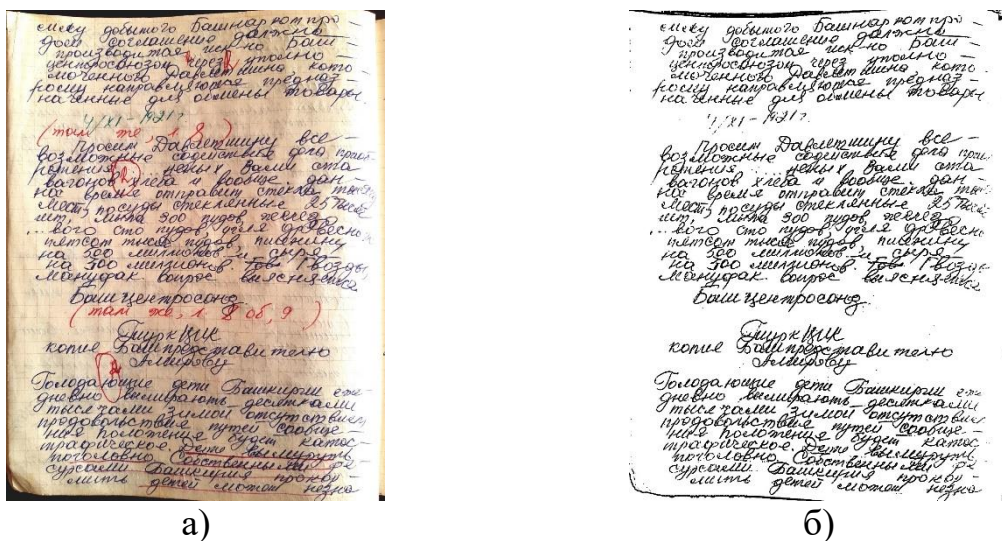 смку добытого Башнаркомпро-
дом соглашения должны
производится иск-но Баш-
центросоюзом через уполно-
моченного Давлетшина кото-
рому направляющое предназ-
наченные для обмены товары
4/XI-1921 г.
(там же, л. 8)
Просим Давлетшину все-
возможные содействие для
ряжения ... ценых Вами ста
вагонов хлеба и вообще дан-
ное время отправили стекла
мест, посуды стеклянные 25 тысяч
шт, 300 пудов железа
...вого сто пудов, угля древесн
пятсот тысяч пудов, пшенину
на 500 миллионов и сыря
на 300 миллионов. Гвозди
мануфак. вопрос выясняется
Башцентросоюз
(там же, л. 8 об, 9)
ТуркЦИК
копие Башпредставителю
Амирову
Голодающие дети Башкирии еже
дневно вымирають десятками
тысячами зимой отсутствием
продовольствия путей сообще-
ния положение будет катос-
трафическое. Дети вымруть
поголовно Собственными ре-
сурсами Башкирия прокор-
мить детей можот незна
смку добытого Башнаркомпро-
дом соглашения должны
производится иск-но Баш-
центросоюзом через уполно-
моченного Давлетшина кото-
рому направляющое предназ-
наченные для обмены товары
4/XI-1921 г.
Просим Давлетшину все-
возможные содействие для
ряжения ... ценых Вами ста
вагонов хлеба и вообще дан-
ное время отправили стекла
мест, посуды стеклянные 25 тысяч
шт, 300 пудов железа
...вого сто пудов, угля древесн
пятсот тысяч пудов, пшенину
на 500 миллионов и сыря
на 300 миллионов. Гвозди
мануфак. вопрос выясняется
Башцентросоюз
ТуркЦИК
копие Башпредставителю
Амирову
Голодающие дети Башкирии еже
дневно вымирають десятками
тысячами зимой отсутствием
продовольствия путей сообще-
ния положение будет катос-
трафическое. Дети вымруть
поголовно Собственными ре-
сурсами Башкирия прокор-
мить детей можот незна
а)
б)